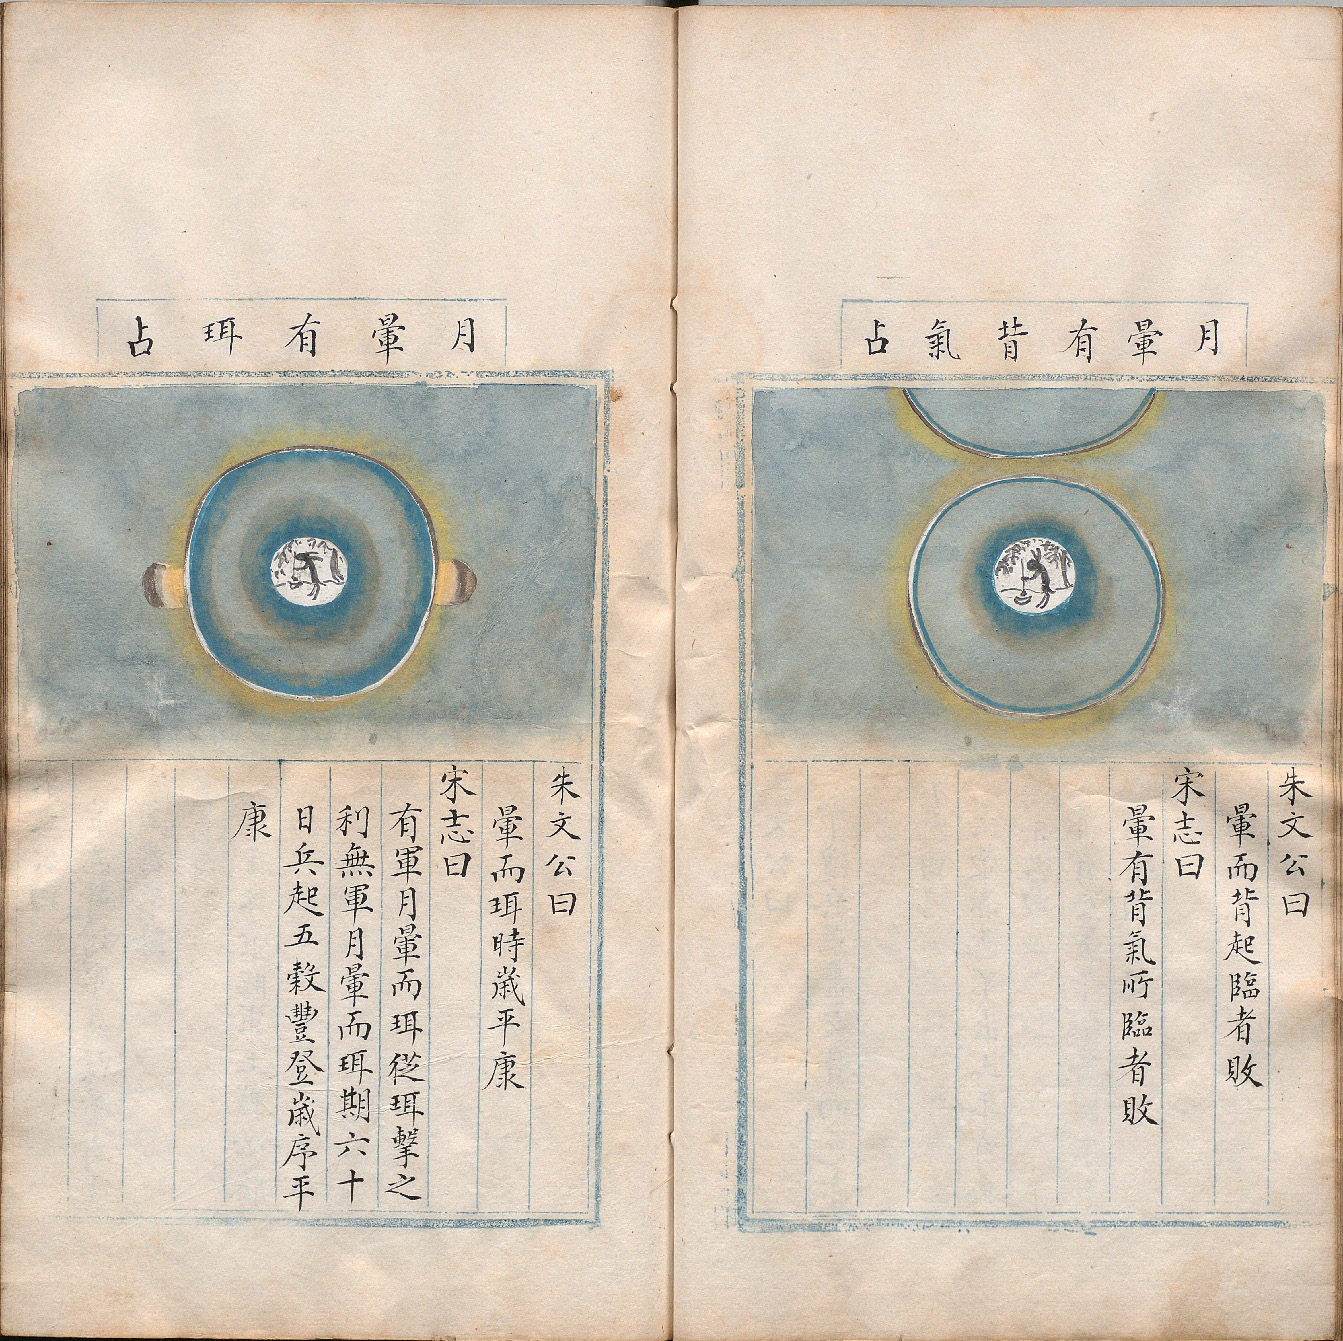 月暈有背氣占
朱文公曰
暈而背起臨者敗
宋志曰
暈有背氣所臨者敗
月暈有珥占
朱文公曰
暈而珥時歲平康
宋志曰
有軍月暈而珥從珥擊之
利無軍月暈而珥期六十
日兵起五穀豐登歲序平
康